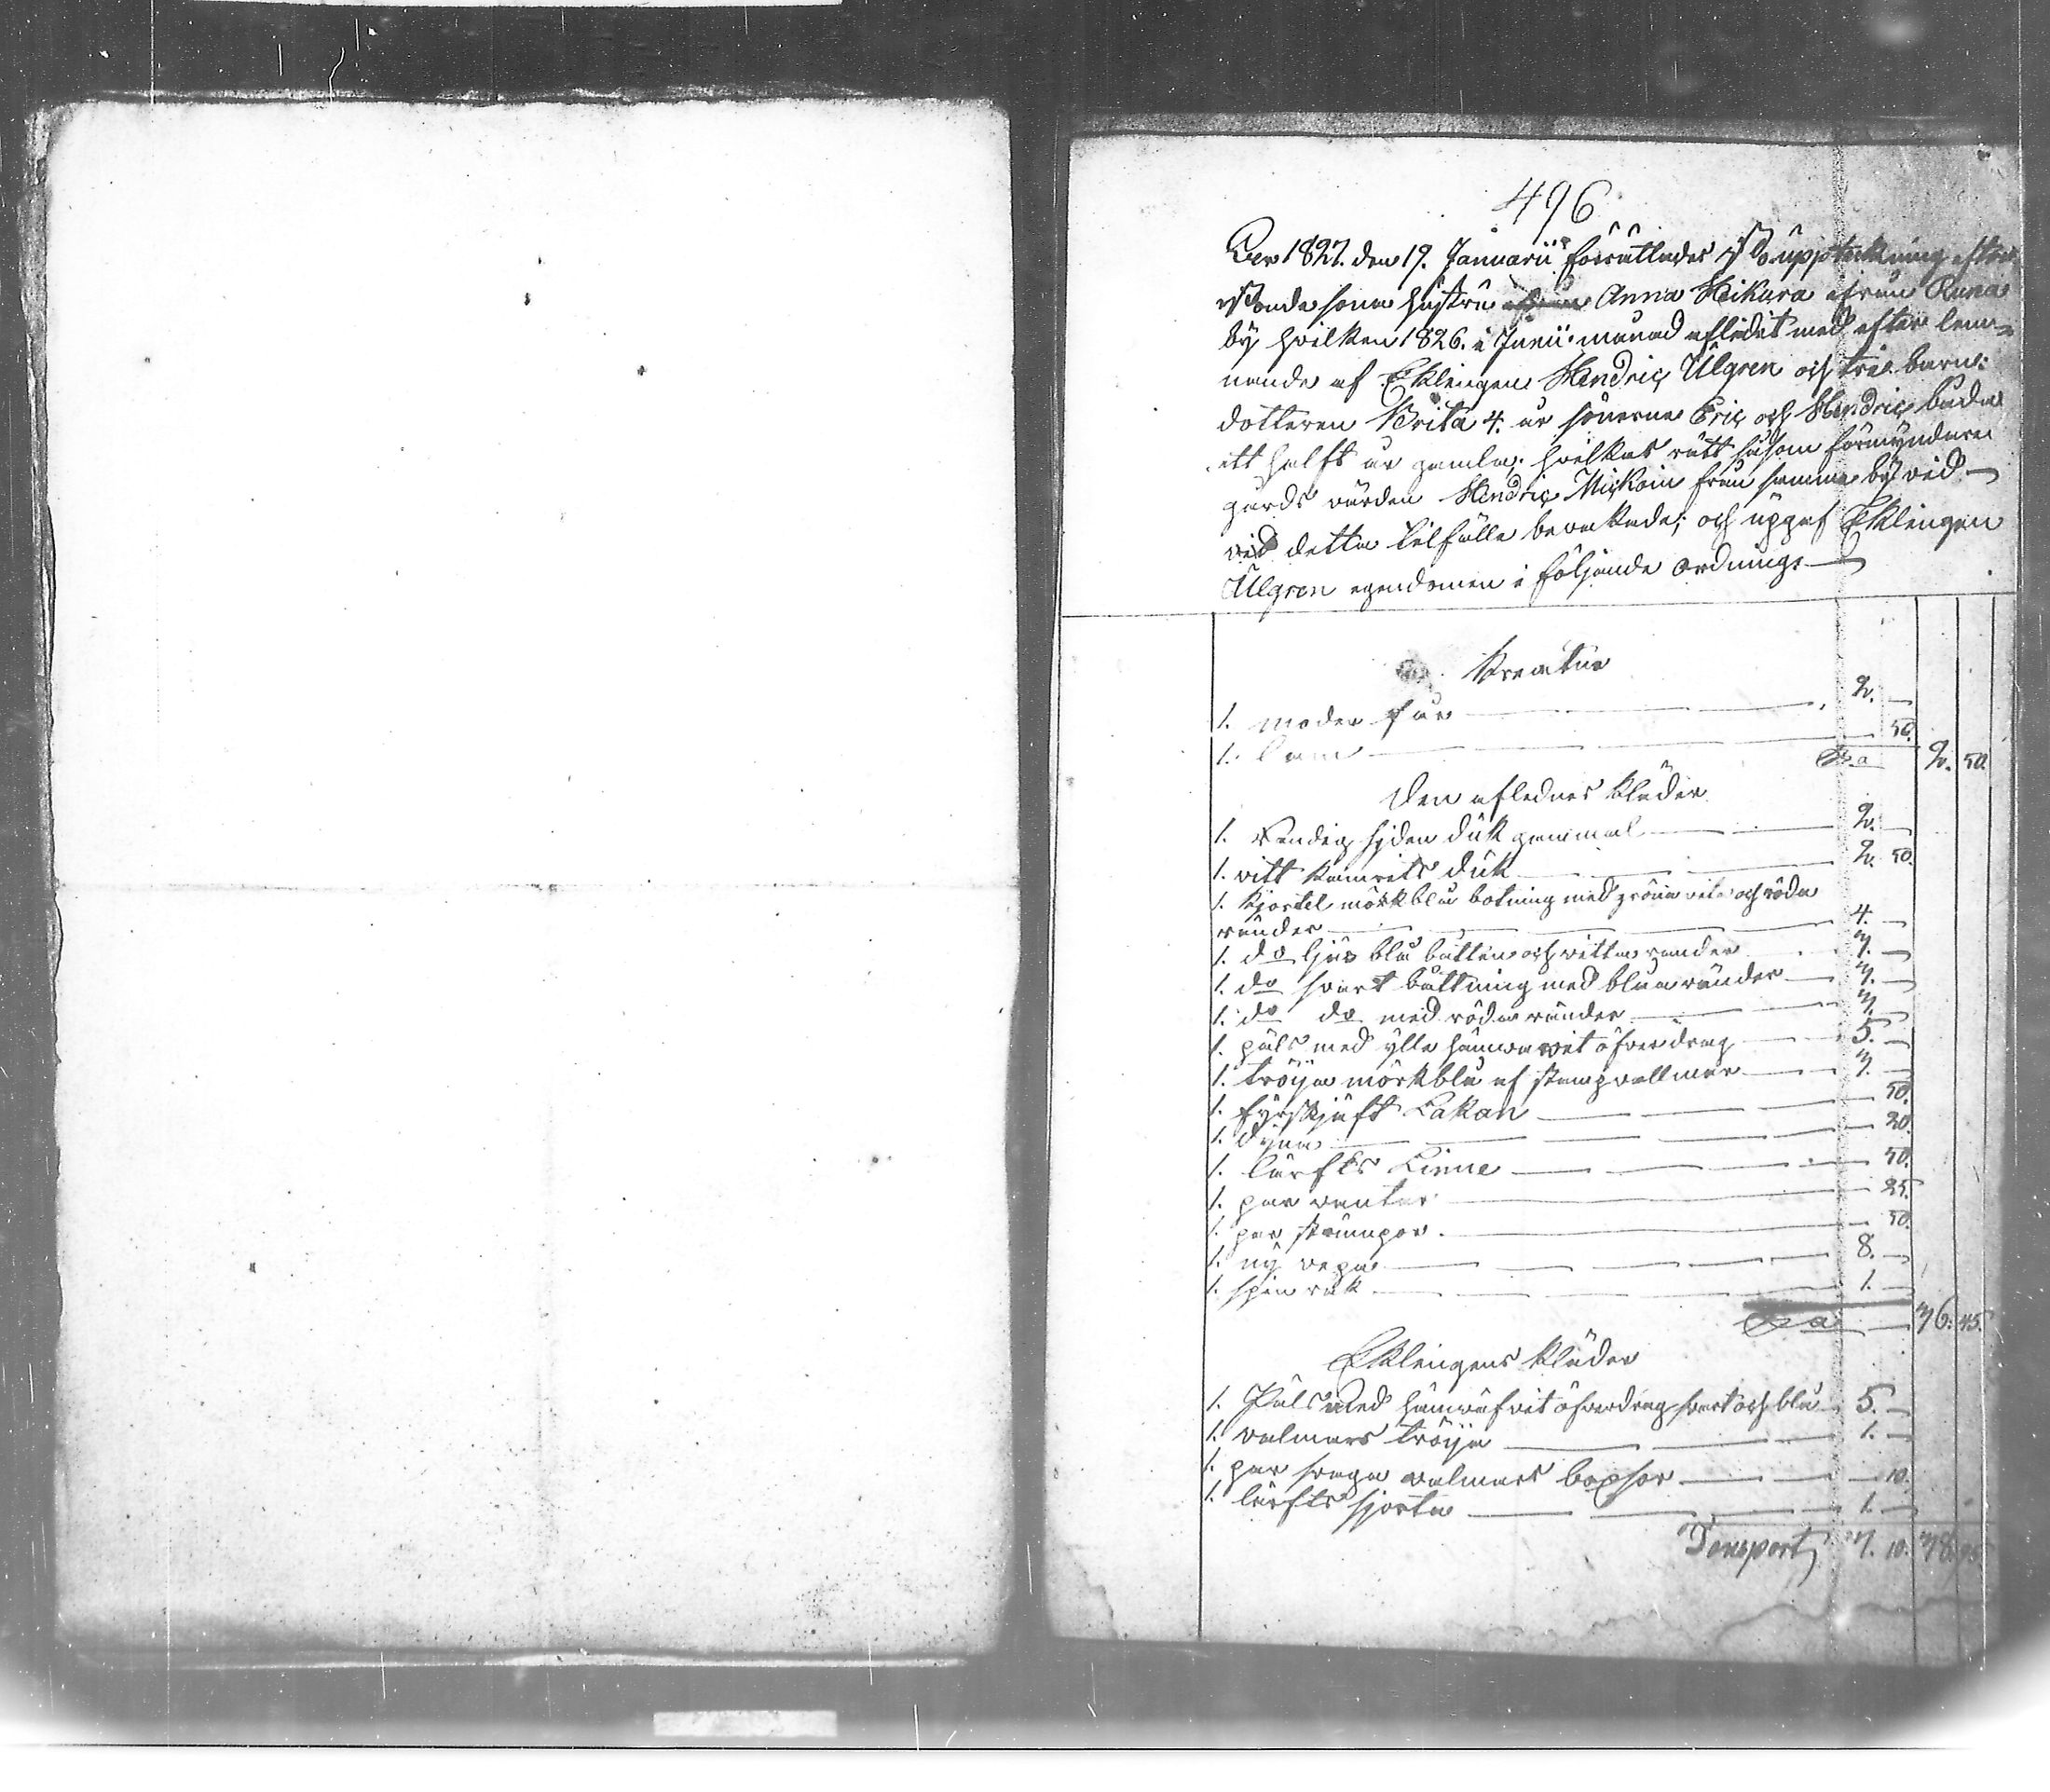 496
Åhr 1827. den 19. Januarii förrättades Bo upptekning efter
Bonde sona hustru Anna Heikura ifrån Runa
by hvilken 1826. i Junii månad aflidit med efter lem=
nande af Eklingen Hendric Ulgren och tree barn:
dotteren Brita 4. år sönerne Eric och Hendric båda
ett halft år gamla; hvilkas rätt såsom förmyndare
gårds värden Hendric Mickoin från samma by vid
vid detta tilfälle bevakade; och uppgaf Eklingen
Ulgren egendomen i följande ordning:
Kreatur
1. moder får 2. —
1. Lam 50.
S:a 2. 50.
Den aflednes kläder
1. Randig siden duk gammal 2. —
1. vitt kamrits duk 2. 50.
1. Kjortel mörkblå botning med gröna vita och röda
ränder 4. —
1. do ljus blå botten och vitta rander 7. —
1. do svart bottning med blåa ränder 7. —
1. do do med röda ränder 7.
1. päls med ylle hämvävit öfverdrag 5. —
1. tröija mörkblå af stampvallmar 7. —
1. fyrskäft Lakan 50.
1. dyna 20.
1. lärfts Linne 50.
1. par vantar 25.
1. par strumpor. 50.
1. ny vepa 8. —
1. spin råk 1. —
S:a 76. 45.
Eklingens kläder
1. Päls med hämväfvit öfverdrag svart och blå 5. —
1. valmars tröija 1. —
1. par svaga valmars boxsor 10.
1. lärfts skjorta 1. —
Transport 7. 10. 78. 95